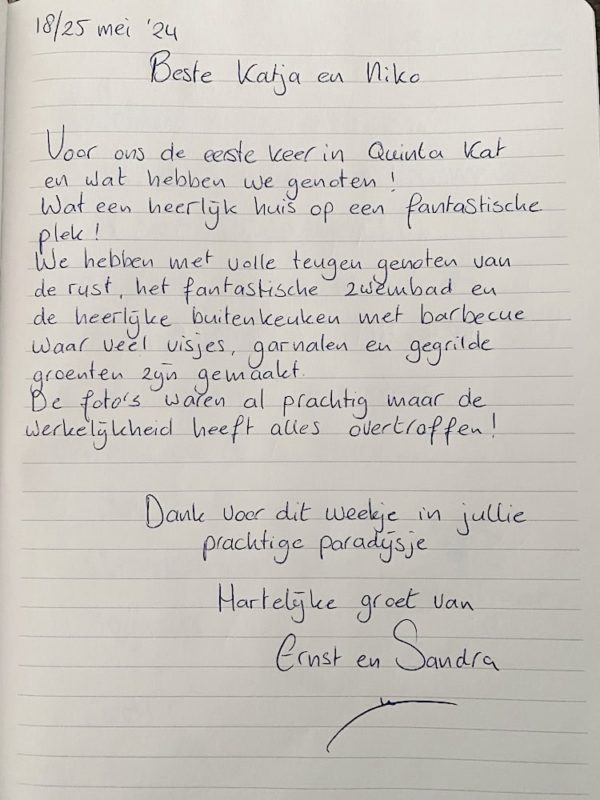 18/25 mei '24
Beste Katja en Niko
Voor ons de eerste keer in Quinta Kat
en wat hebben we genoten!
Wat een heerlijk huis op een fantastische
plek!
We hebben met volle teugen genoten van
de rust, het fantastische zwembad en
de heerlijke buitenkeuken met barbecue
waar veel visjes, garnalen en gegrilde
groenten zijn gemaakt.
De foto's waren al prachtig maar de
werkelijkheid heeft alles overtroffen!
Dank voor dit weekje in jullie
prachtige paradijsje
Hartelijke groet van
Ernst en Sandra